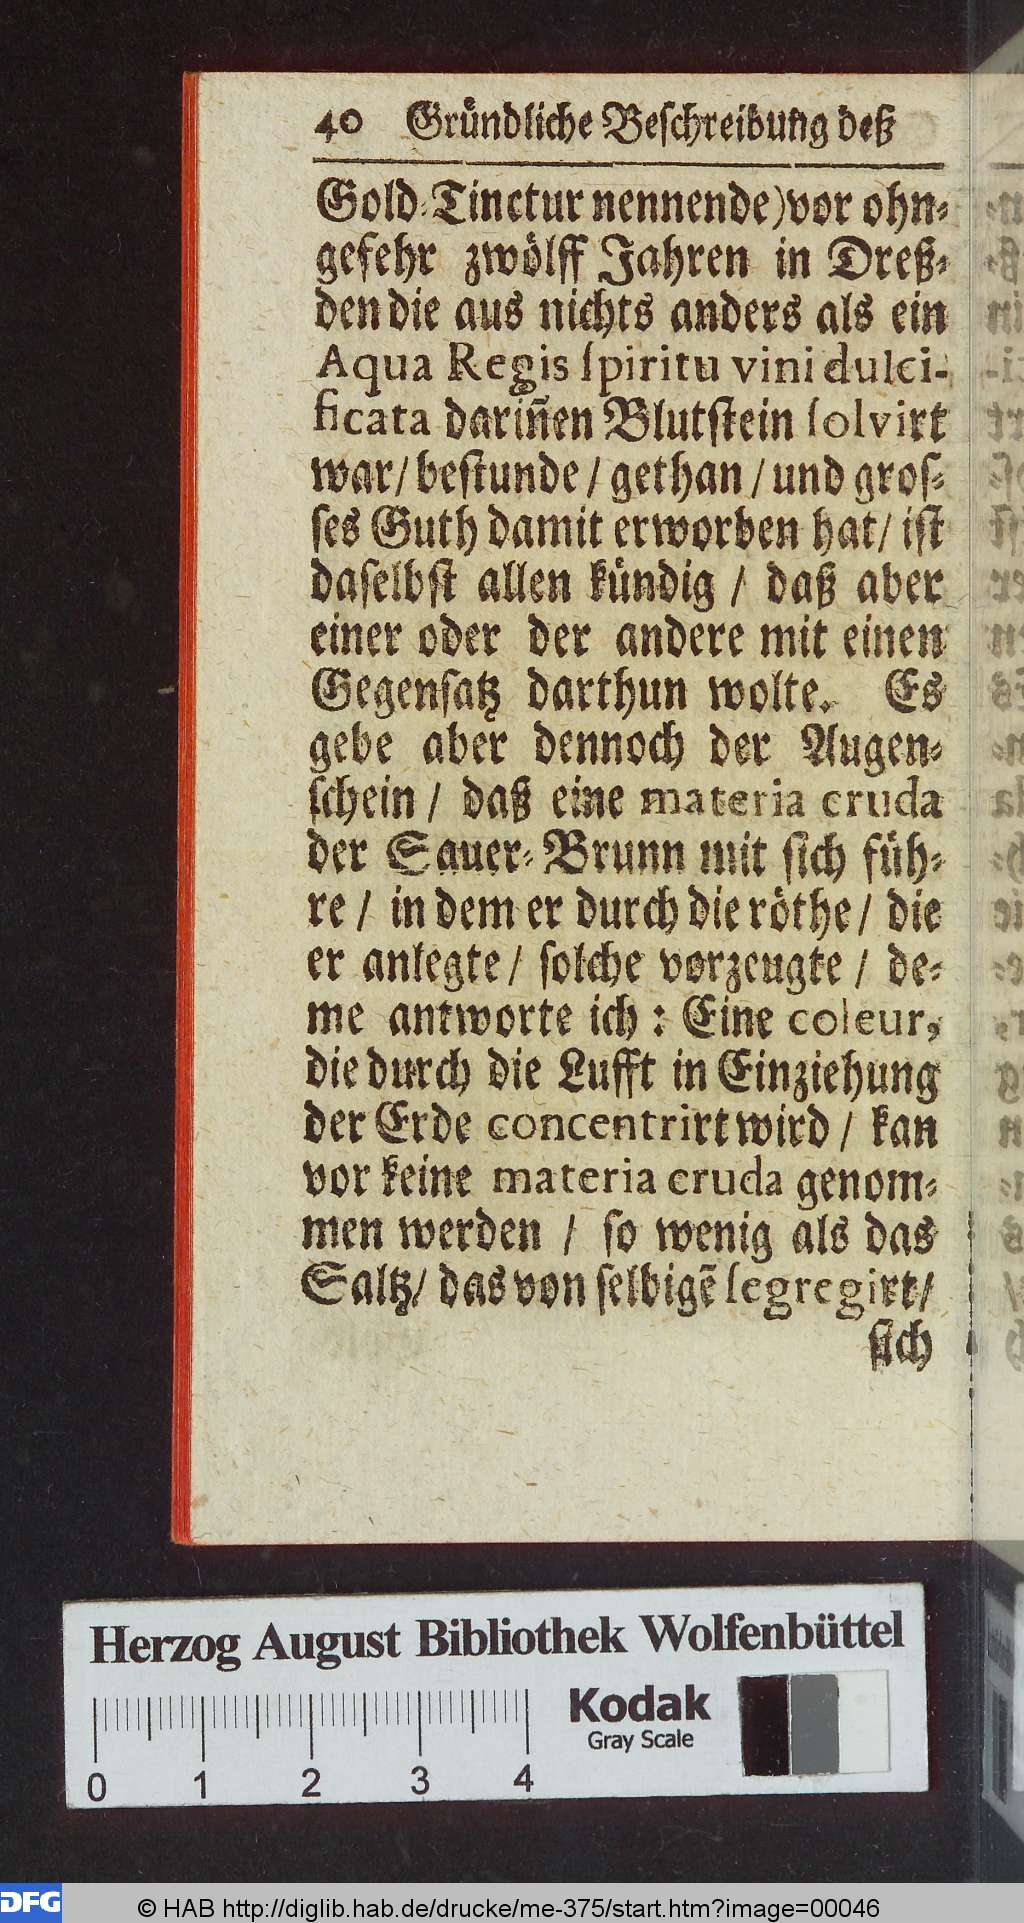 40 Gründliche Beſchreibung deß
Gold-Tinctur nennende) vor ohn-
gefehr zwölff Jahren in Dreß-
den die aus nichts anders als ein
Aqua Regis ſpiritu vini dulci-
ficata dariñen Blutſtein ſolvirt
war / beſtunde / gethan / und groſ-
ſes Guth damit erworben hat / iſt
daſelbſt allen kündig / daß aber
einer oder der andere mit einen
Gegenſatz darthun wolte. Es
gebe aber dennoch der Augen-
ſchein / daß eine materia cruda
der Sauer-Brunn mit ſich füh-
re / in dem er durch die röthe / die
er anlegte / ſolche vorzeugte / de-
me antworte ich : Eine coleur,
die durch die Lufft in Einziehung
der Erde concentrirt wird / kan
vor keine materia cruda genom-
men werden / ſo wenig als das
Saltz / das von ſelbigẽ ſegregirt /
ſich
Herzog August Bibliothek Wolfenbüttel
Kodak
Gray Scale
0 1 2 3 4
DFG © HAB http://diglib.hab.de/drucke/me-375/start.htm?image=00046